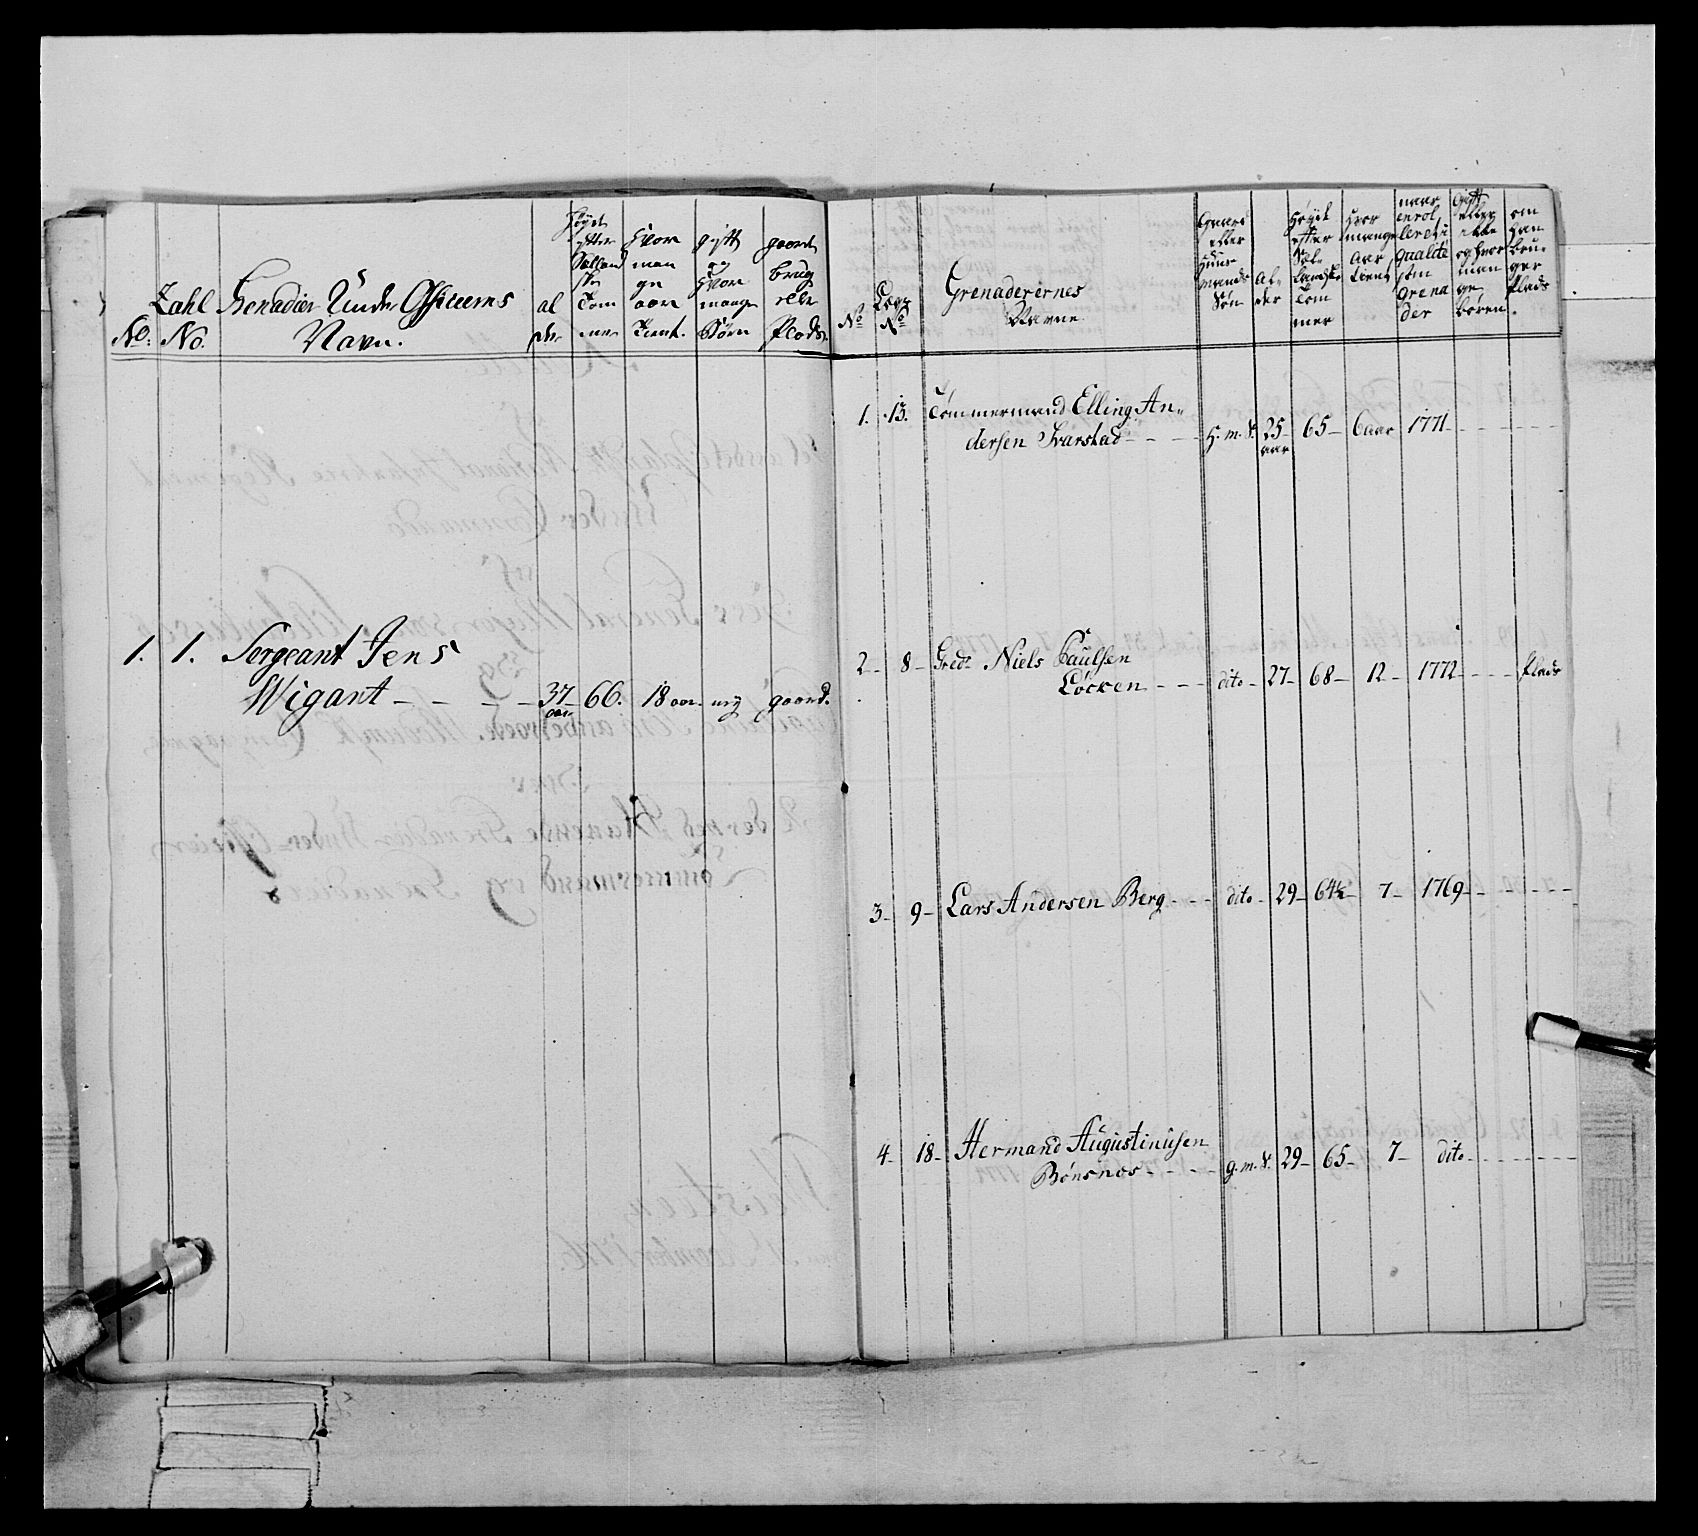 No: Zahl No. Grenadier Under Officeerns Navn. al der Høyde efter Sællandske Tommer Hvor mange aar Tient. gift og Hvor mange Børn gaard brug eller Plads.
1. 1. Sergeant Jens
Wigant - - - - 37 aar 66. 18 aar. ney gaard.
No Log No Grenaderernes Navne gaard eller Huusmands Søn al der Høyde efter Sælandske Tommer Hvor mange aar Tient naar enrolleret i qualité som grenader gift eller ikke og hvor mange børen. om han bruger Plads
1. 13. Tømmermand Elling An=
dersen Svarstad - - - H. m. S. 25 aar 65 6 aar 1771
2 8 Gredr Niels Paulsen
Löcken - - - dito 27 68 12 1772 - - - Plads
3 9 Lars Andersen Berg - - - dito 29 64½ 7 1769 - - -
4 18 Hermand Augustinusen
Bönsnæs - - - g. m. S. 29 65 7 dito - - -